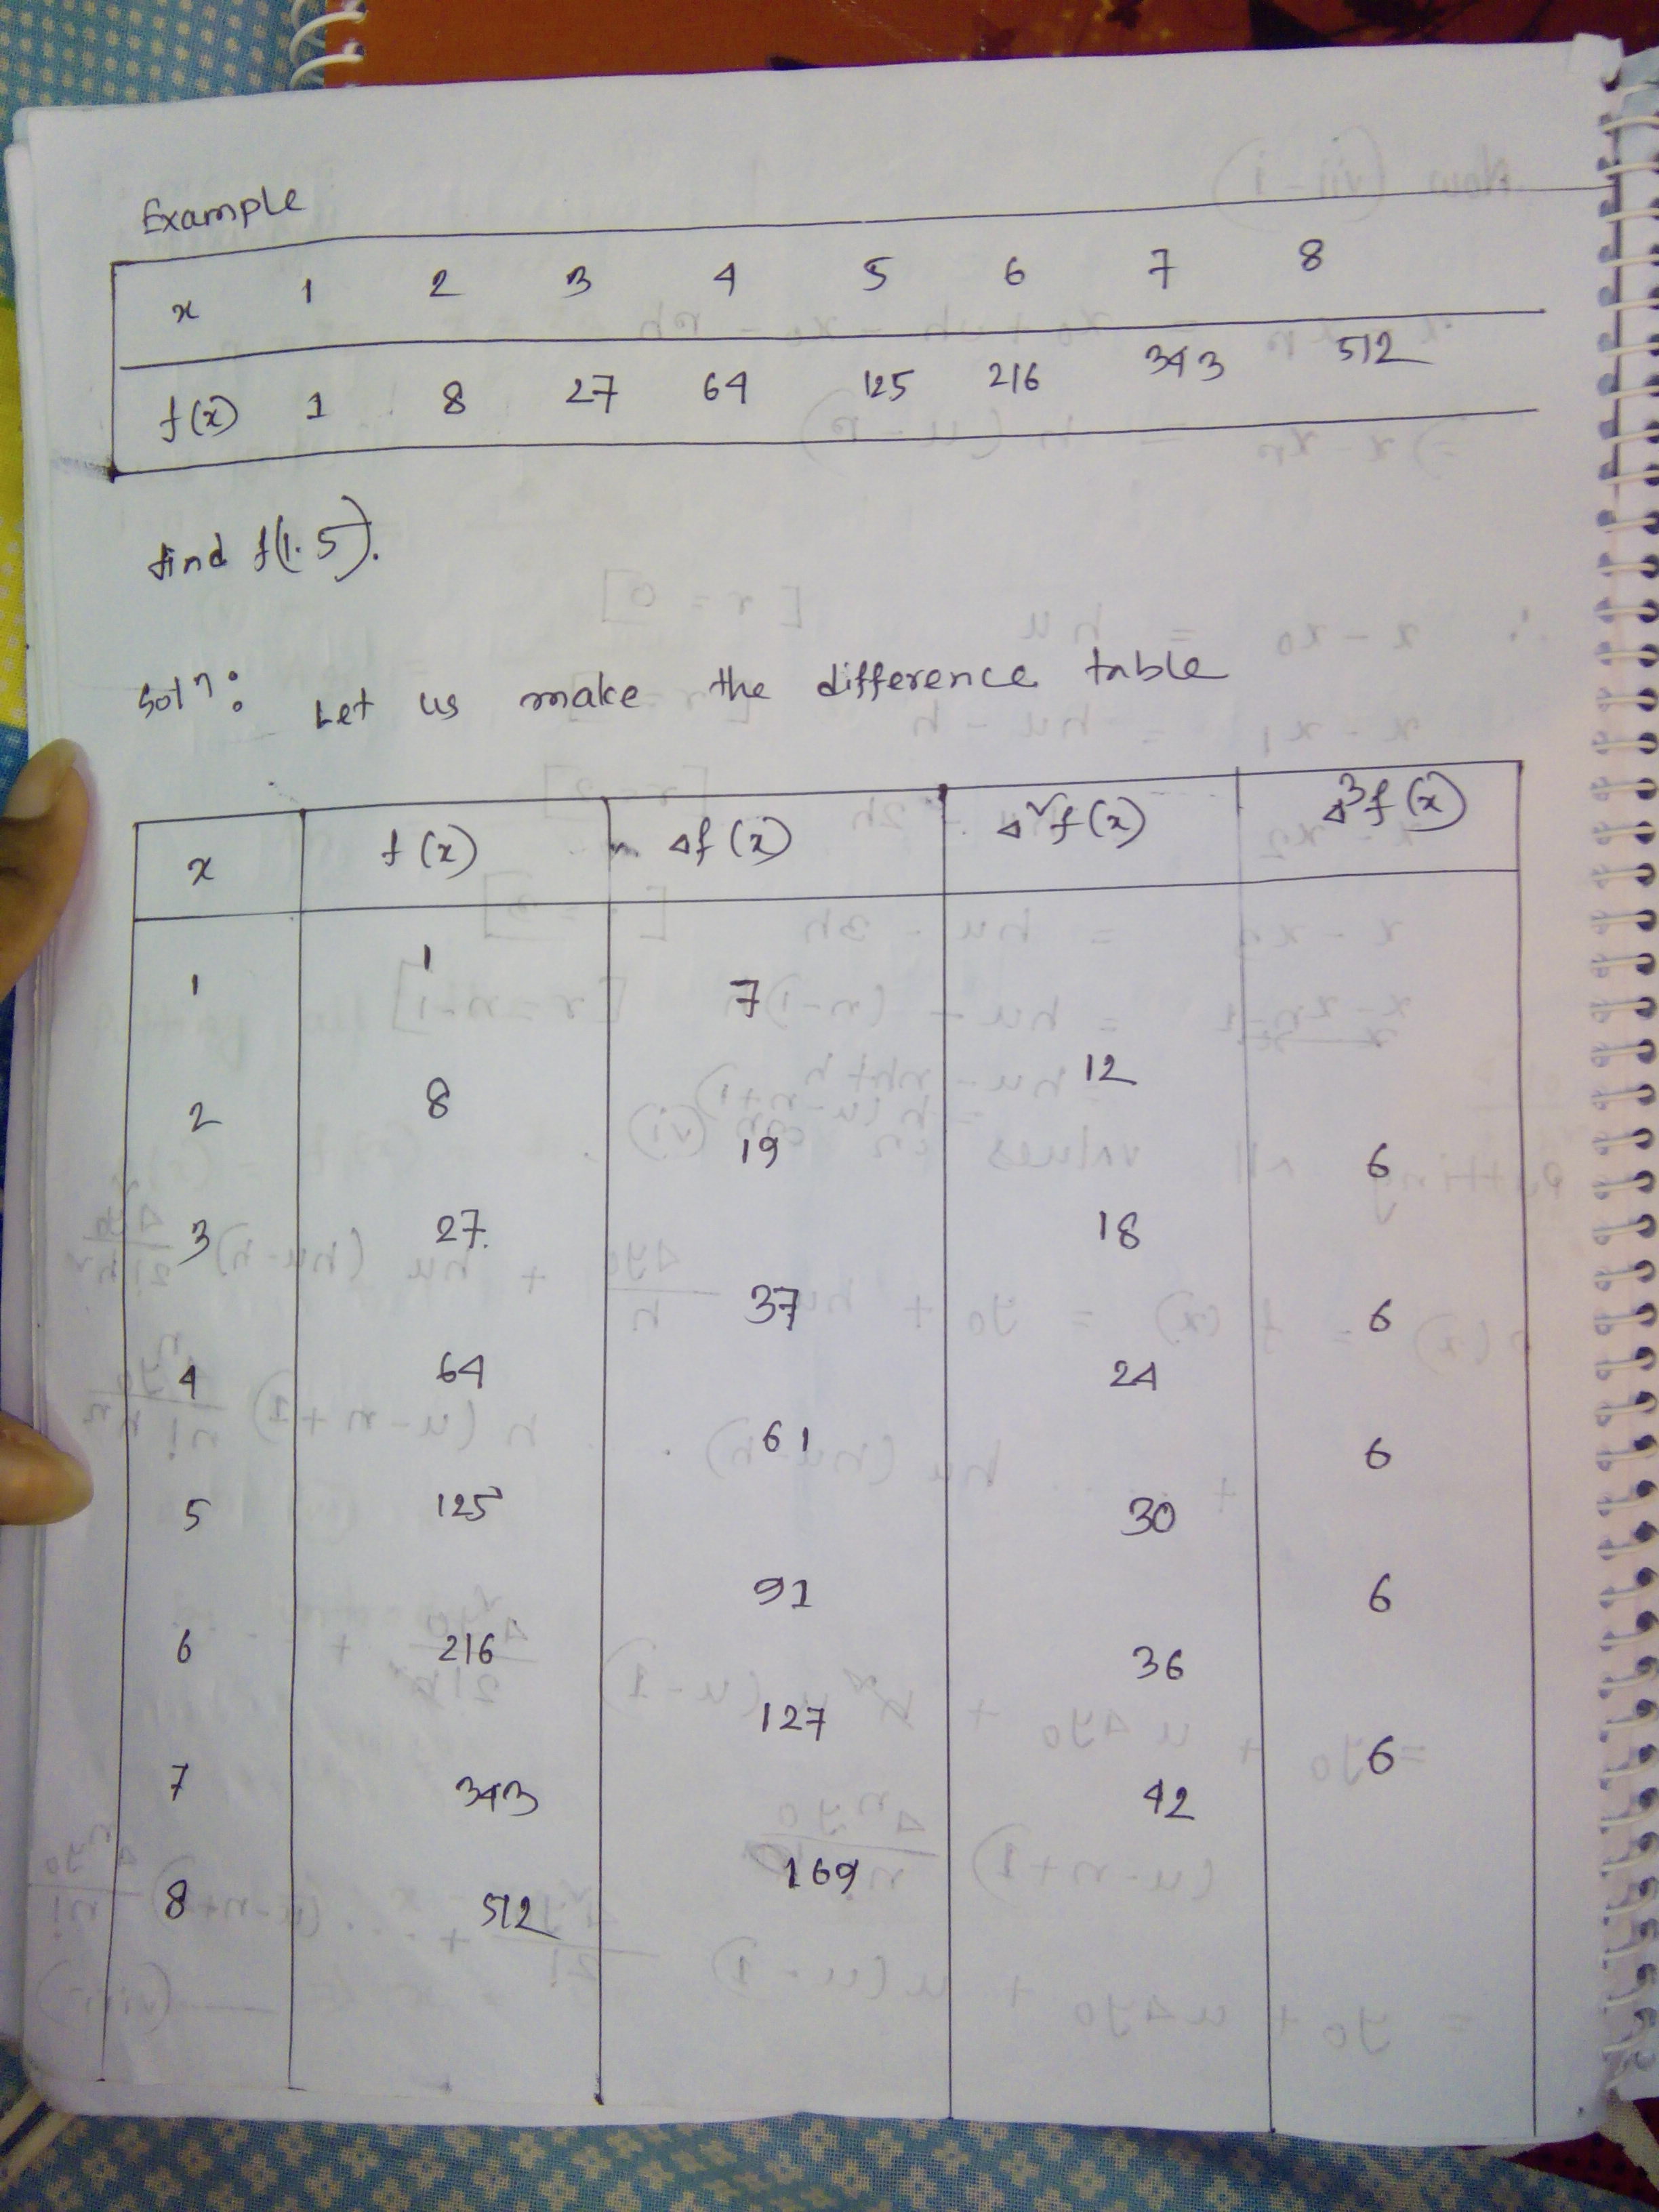 Example
x 1 2 3 4 5 6 7 8
f(x) 1 8 27 64 125 216 343 512
find f(1.5).
Solⁿ: Let us make the difference table
x f(x) Δf(x) Δ²f(x) Δ³f(x)
1 1
7
12
2 8
19
6
3 27.
18
37
6
4 64
24
61
6
5 125
30
91
6
6 216
36
127
6
7 343
42
169
8 512